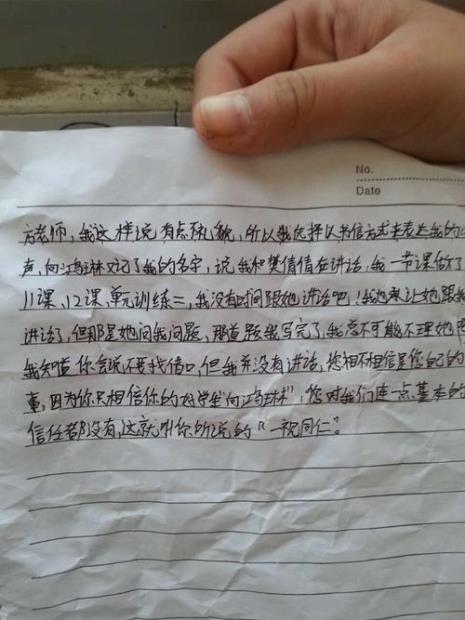 No.
Date
方老师,我这样说有点礼貌,所以我选择以书信方式来表达我的心
声,向鸿琳又记了我的名字,说我和樊倩倩在讲话,我一节课做了
11课、12课、单元训练三,我没有时间跟她讲话吧!我也承让她跟我
讲话了,但那是她问我问题,那道题我写完了,我总不可能不理她吧
我知道你会说不要找借口,但我并没有讲话,您相不相信是您自己的
事,因为你只相信你的好学生“向鸿琳”,您对我们连一点基本的
信任都没有,这就叫你所说的“一视同仁”。